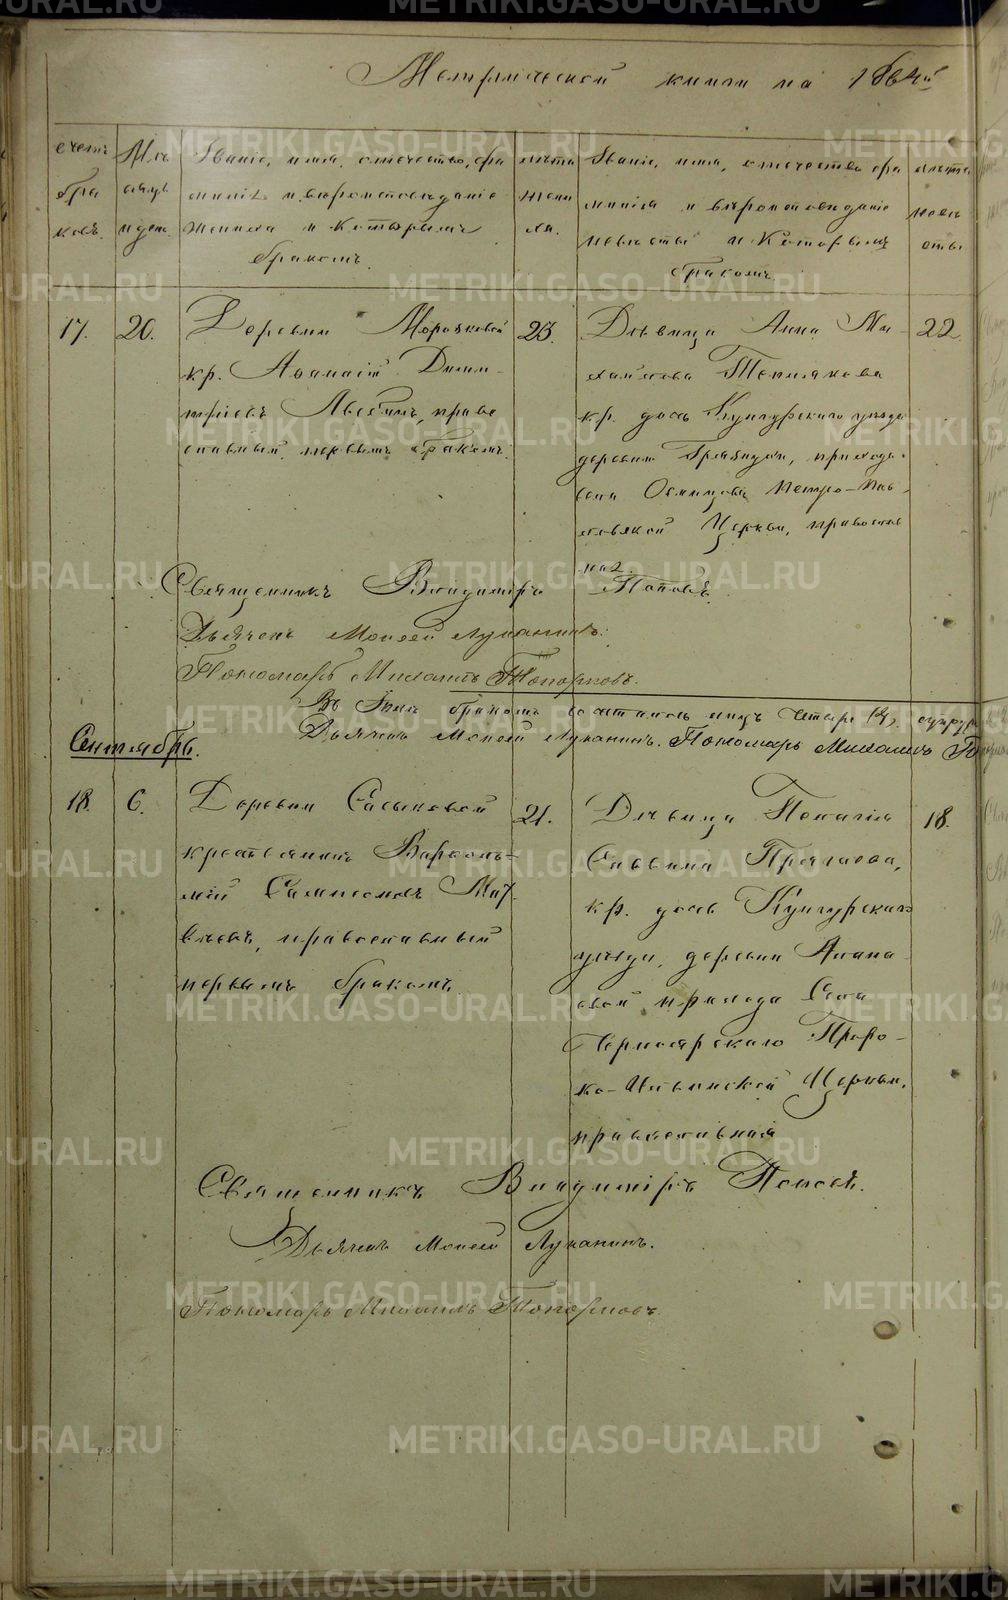 Метрической книги на 1864й
счетъ браковъ
Мѣсяцъ и день
Званіе, имя, отчество, фамилія и вѣроисповѣданіе жениха и которымъ бракомъ
лѣта жениха
Званіе, имя, отчество фамилія и вѣроисповѣданіе невѣсты и которымъ бракомъ
лѣта невѣсты
17.
20.
Деревни
кр. Аѳанасій Дими-
тріевъ право
славный, первымъ бракомъ.
23.
Дѣвица Анна Ми-
хайлова Теплякова
кр. дочь Кунгурскаго уѣзда
деревни прихода
села Петро-Пав-
ловской Церкви, православ
ная
22
Священникъ Владиміръ Поповъ.
Дьячекъ Моисей Луканинъ.
Пономарь Михаилъ Топорковъ.
бракомъ
Дьячекъ Моисей Луканинъ. Пономарь Михаилъ
Сентябрь.
18.
6.
Деревни Сасыковой
крестьянинъ Варѳоло-
мей Сампсоновъ Мат-
вѣевъ, православный
первымъ бракомъ.
21.
Дѣвица Пелагія
Саввина
кр. дочь Кунгурскаго
уѣзда, деревни
прихода Села
Черноярскаго Проро-
ко-Ильинской Церкви.
православная
18.
Священникъ Владиміръ Поповъ.
Дьячекъ Моисей Луканинъ.
Пономарь Михаилъ Топорковъ.
METRIKI.GASO-URAL.RU